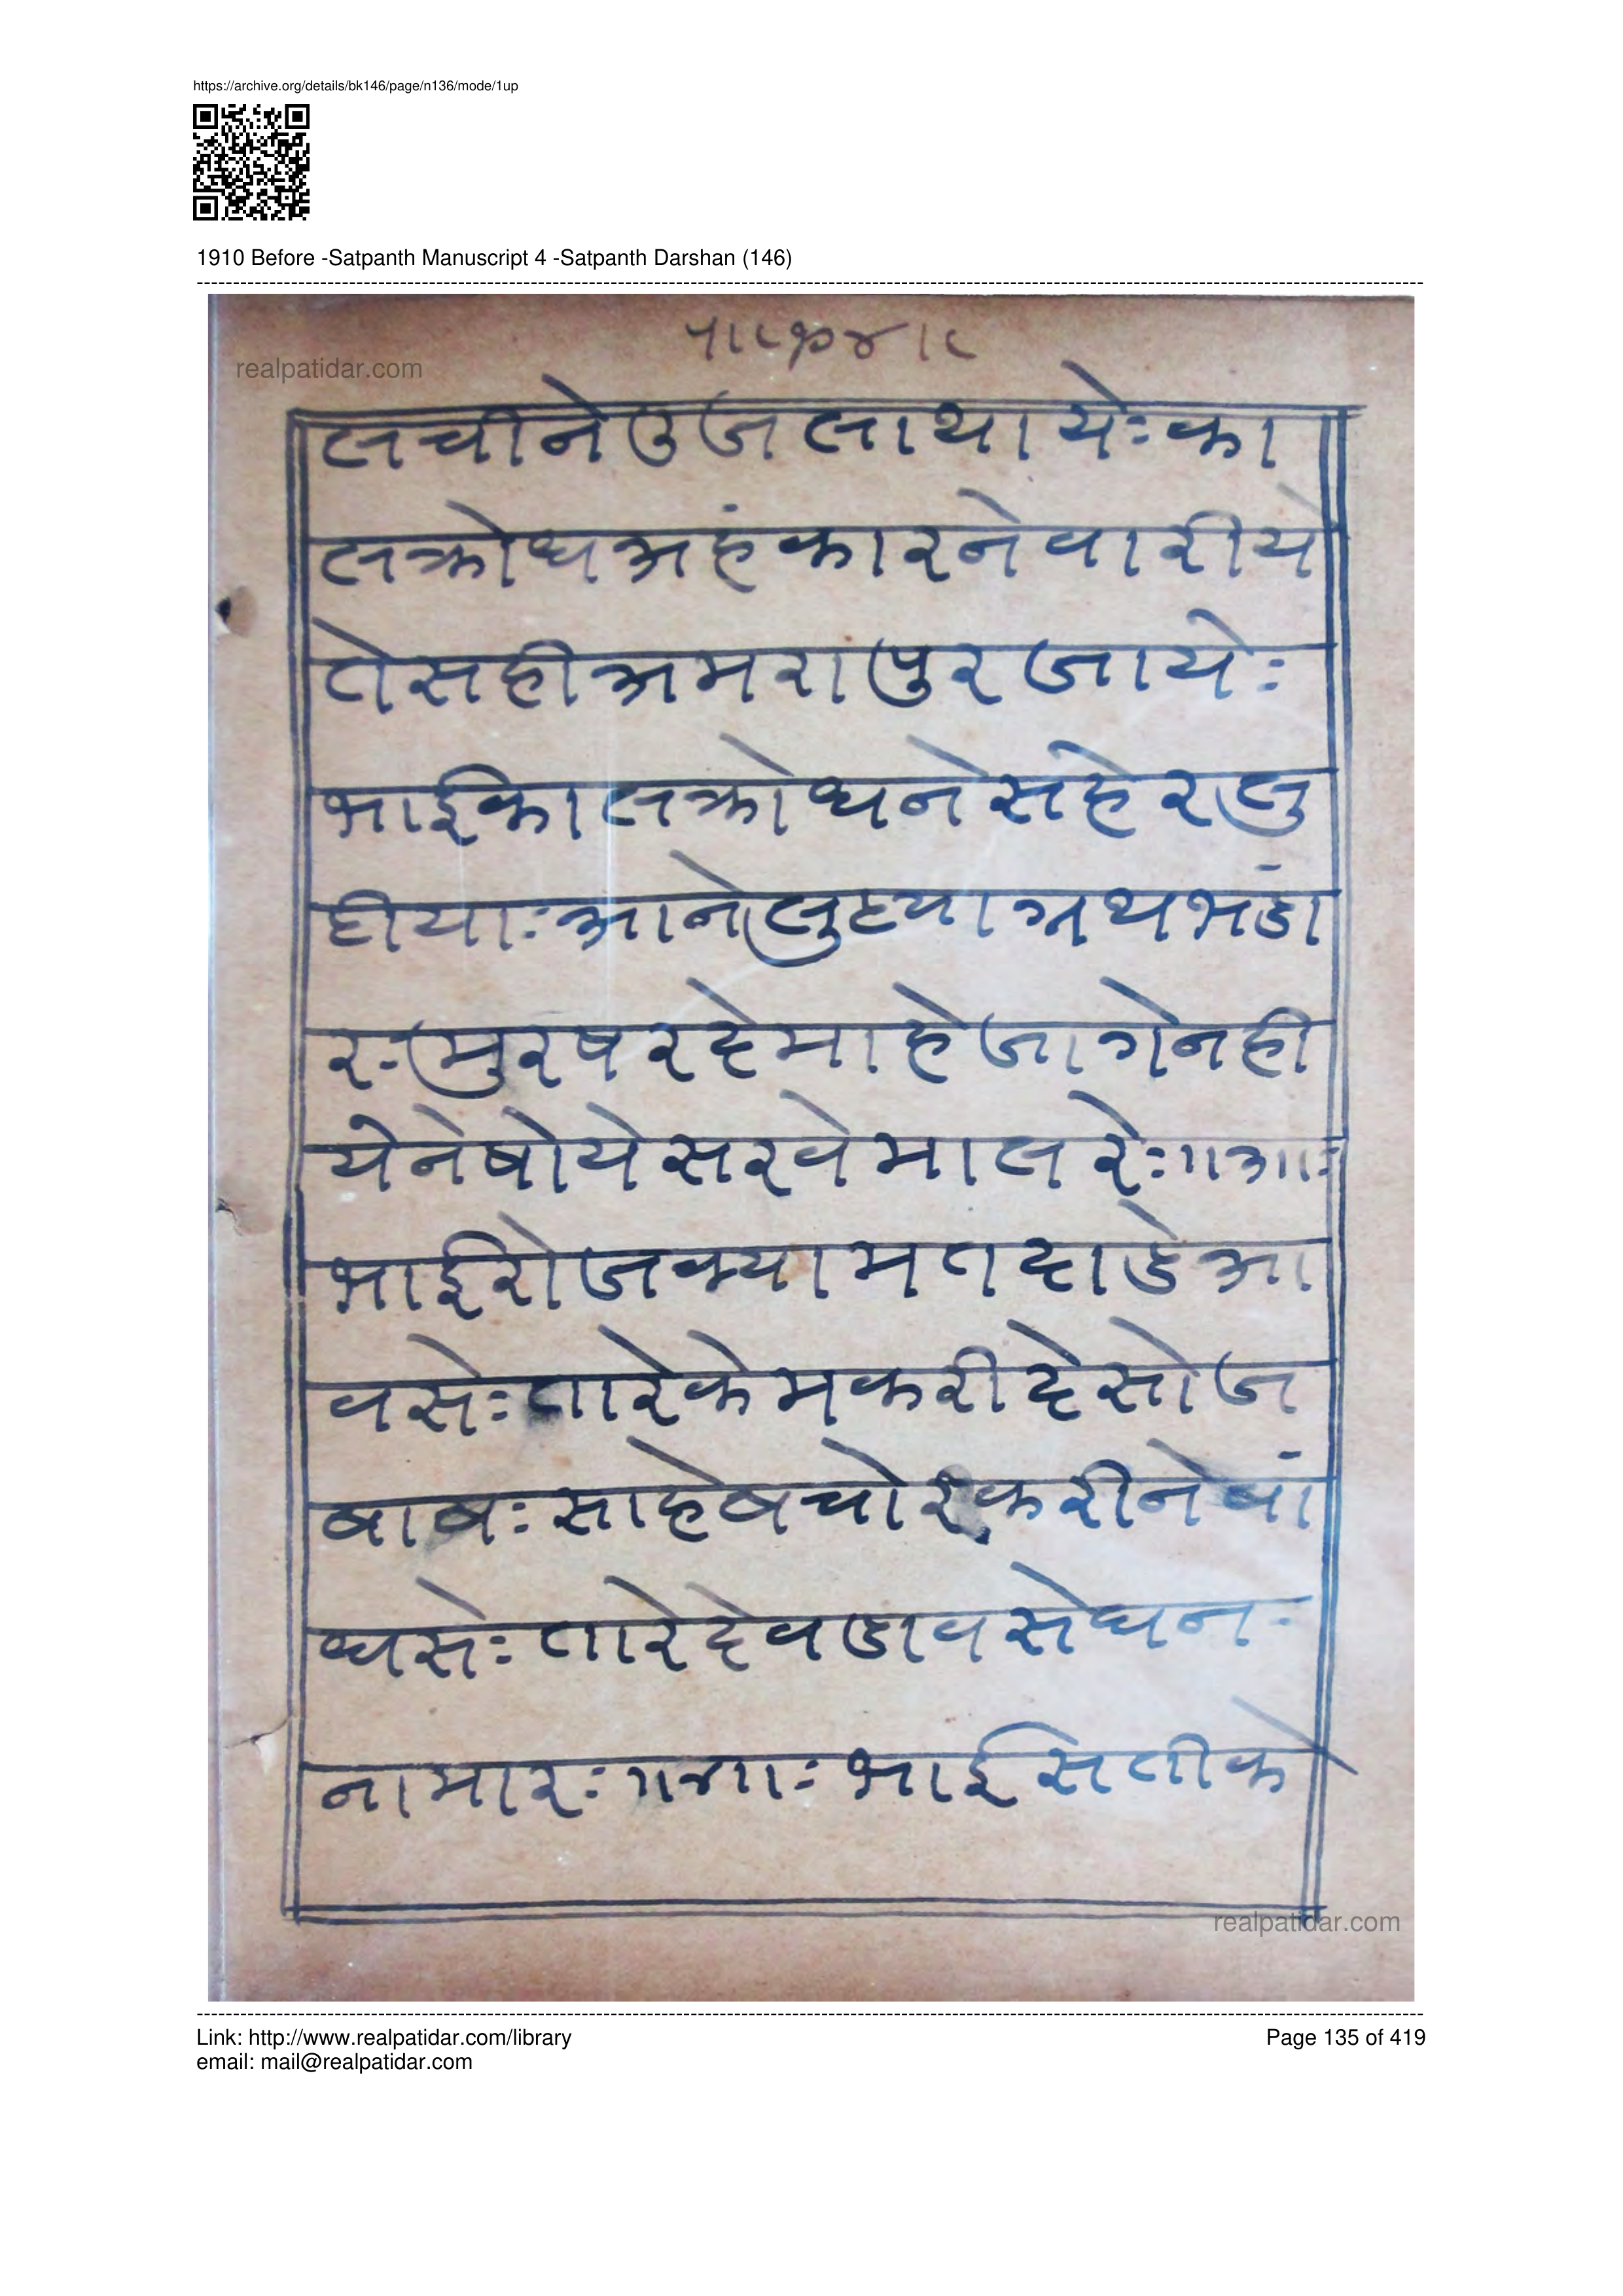 https://archive.org/details/bk146/page/n136/mode/1up
1910 Before -Satpanth Manuscript 4 -Satpanth Darshan (146)
realpatidar.com
लचीनेउजलाथायेःका
लक्रोधअहंकारनेवारीये
तेसहीअमरापुरजायेः
भाईकालक्रोधनेसहेरलु
टीयाःआनेलुटयाग्रथभंडा
रःमुरषरदेमाहेजागेनही
येनेषोयेसरवेमालरेः॥
भाईरोजक्यामतदाडेआ
वसेःतारेकेमकरीदेसोज
बाबःसाहेबचोरकरीनेबां
धसेःतारेदेवडावसेघनः
नामारःभाईसितीके
realpatidar.com
Link: http://www.realpatidar.com/library
email: mail@realpatidar.com
Page 135 of 419